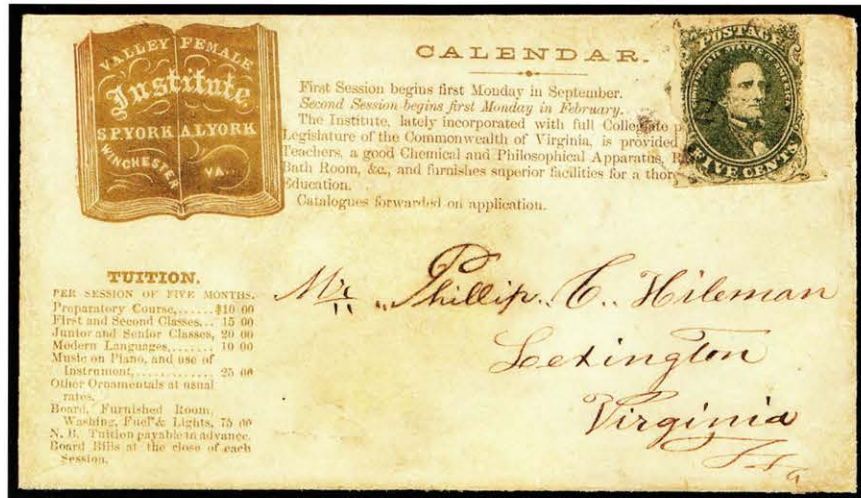 VALLEY FEMALE
Institute.
S.P. YORK A.L. YORK
WINCHESTER VA.
CALENDAR.
First Session begins first Monday in September.
Second Session begins first Monday in February.
The Institute, lately incorporated with full Collegiate p
Legislature of the Commonwealth of Virginia, is provided
Teachers, a good Chemical and Philosophical Apparatus,
Bath Room, &c., and furnishes superior facilities for a thor
Education.
Catalogues forwarded on application.
POSTAGE
CONFEDERATE STATES OF AMERICA
FIVE CENTS
TUITION.
PER SESSION OF FIVE MONTHS.
Preparatory Course,......$10 00
First and Second Classes,.. 15 00
Junior and Senior Classes, 20 00
Modern Languages,....... 10 00
Music on Piano, and use of
Instrument,............. 25 00
Other Ornamentals at usual
rates.
Board, Furnished Room,
Washing, Fuel & Lights, 75 00
N. B. Tuition payable in advance.
Board Bills at the close of each
Session.
Mr. Phillip. C. Hileman
Lexington
Virginia